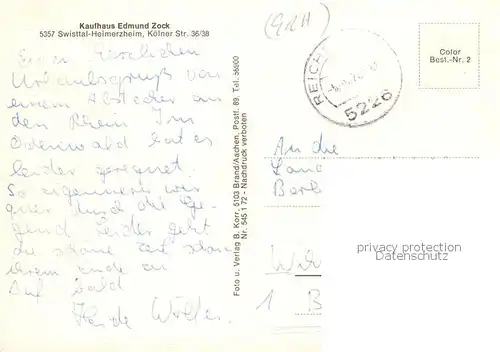 Kaufhaus Edmund Zock
5357 Swisttal-Heimerzheim, Kölner Str. 36/38
Einen herzlichen
Urlaubsgruß von
einem Abstecher an
den Rhein. Im
Odenwald hat es
leider geregnet.
So
wir
quer durch die Ge-
gend. Leider geht
die schöne Zeit schon
ihrem Ende zu
Auf bald
Foto u. Verlag B. Korr, 5103 Brand/Aachen, Postf. 89, Tel. 56600
Nr. 545 1 72 - Nachdruck verboten
(GRH)
REICH
5226
Color
Best.-Nr. 2
An die
Land
Berl
privacy protection
Datenschutz
1 B